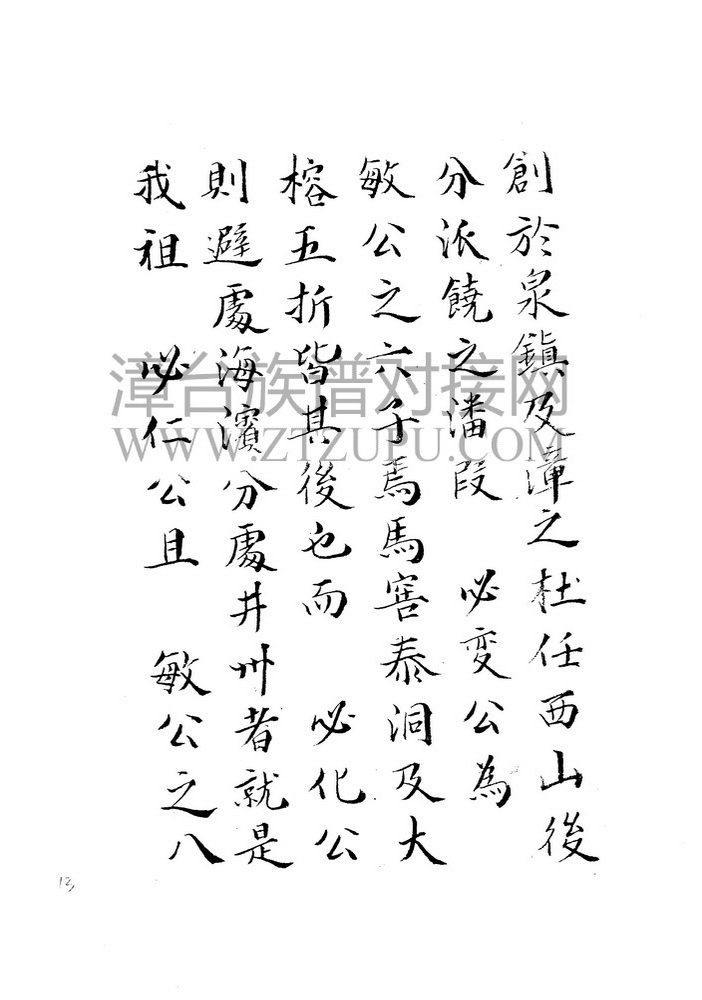 創於泉鎮及漳之杜任西山後
分派饒之潘段 必变公為
敏公之六子焉馬窖泰洞及大
榕五折皆其後也而 必化公
則避處海濱分處井卅者就是
我祖 必仁公且 敏公之八
漳台族谱对接网
WWW.ZTZUPU.COM
13